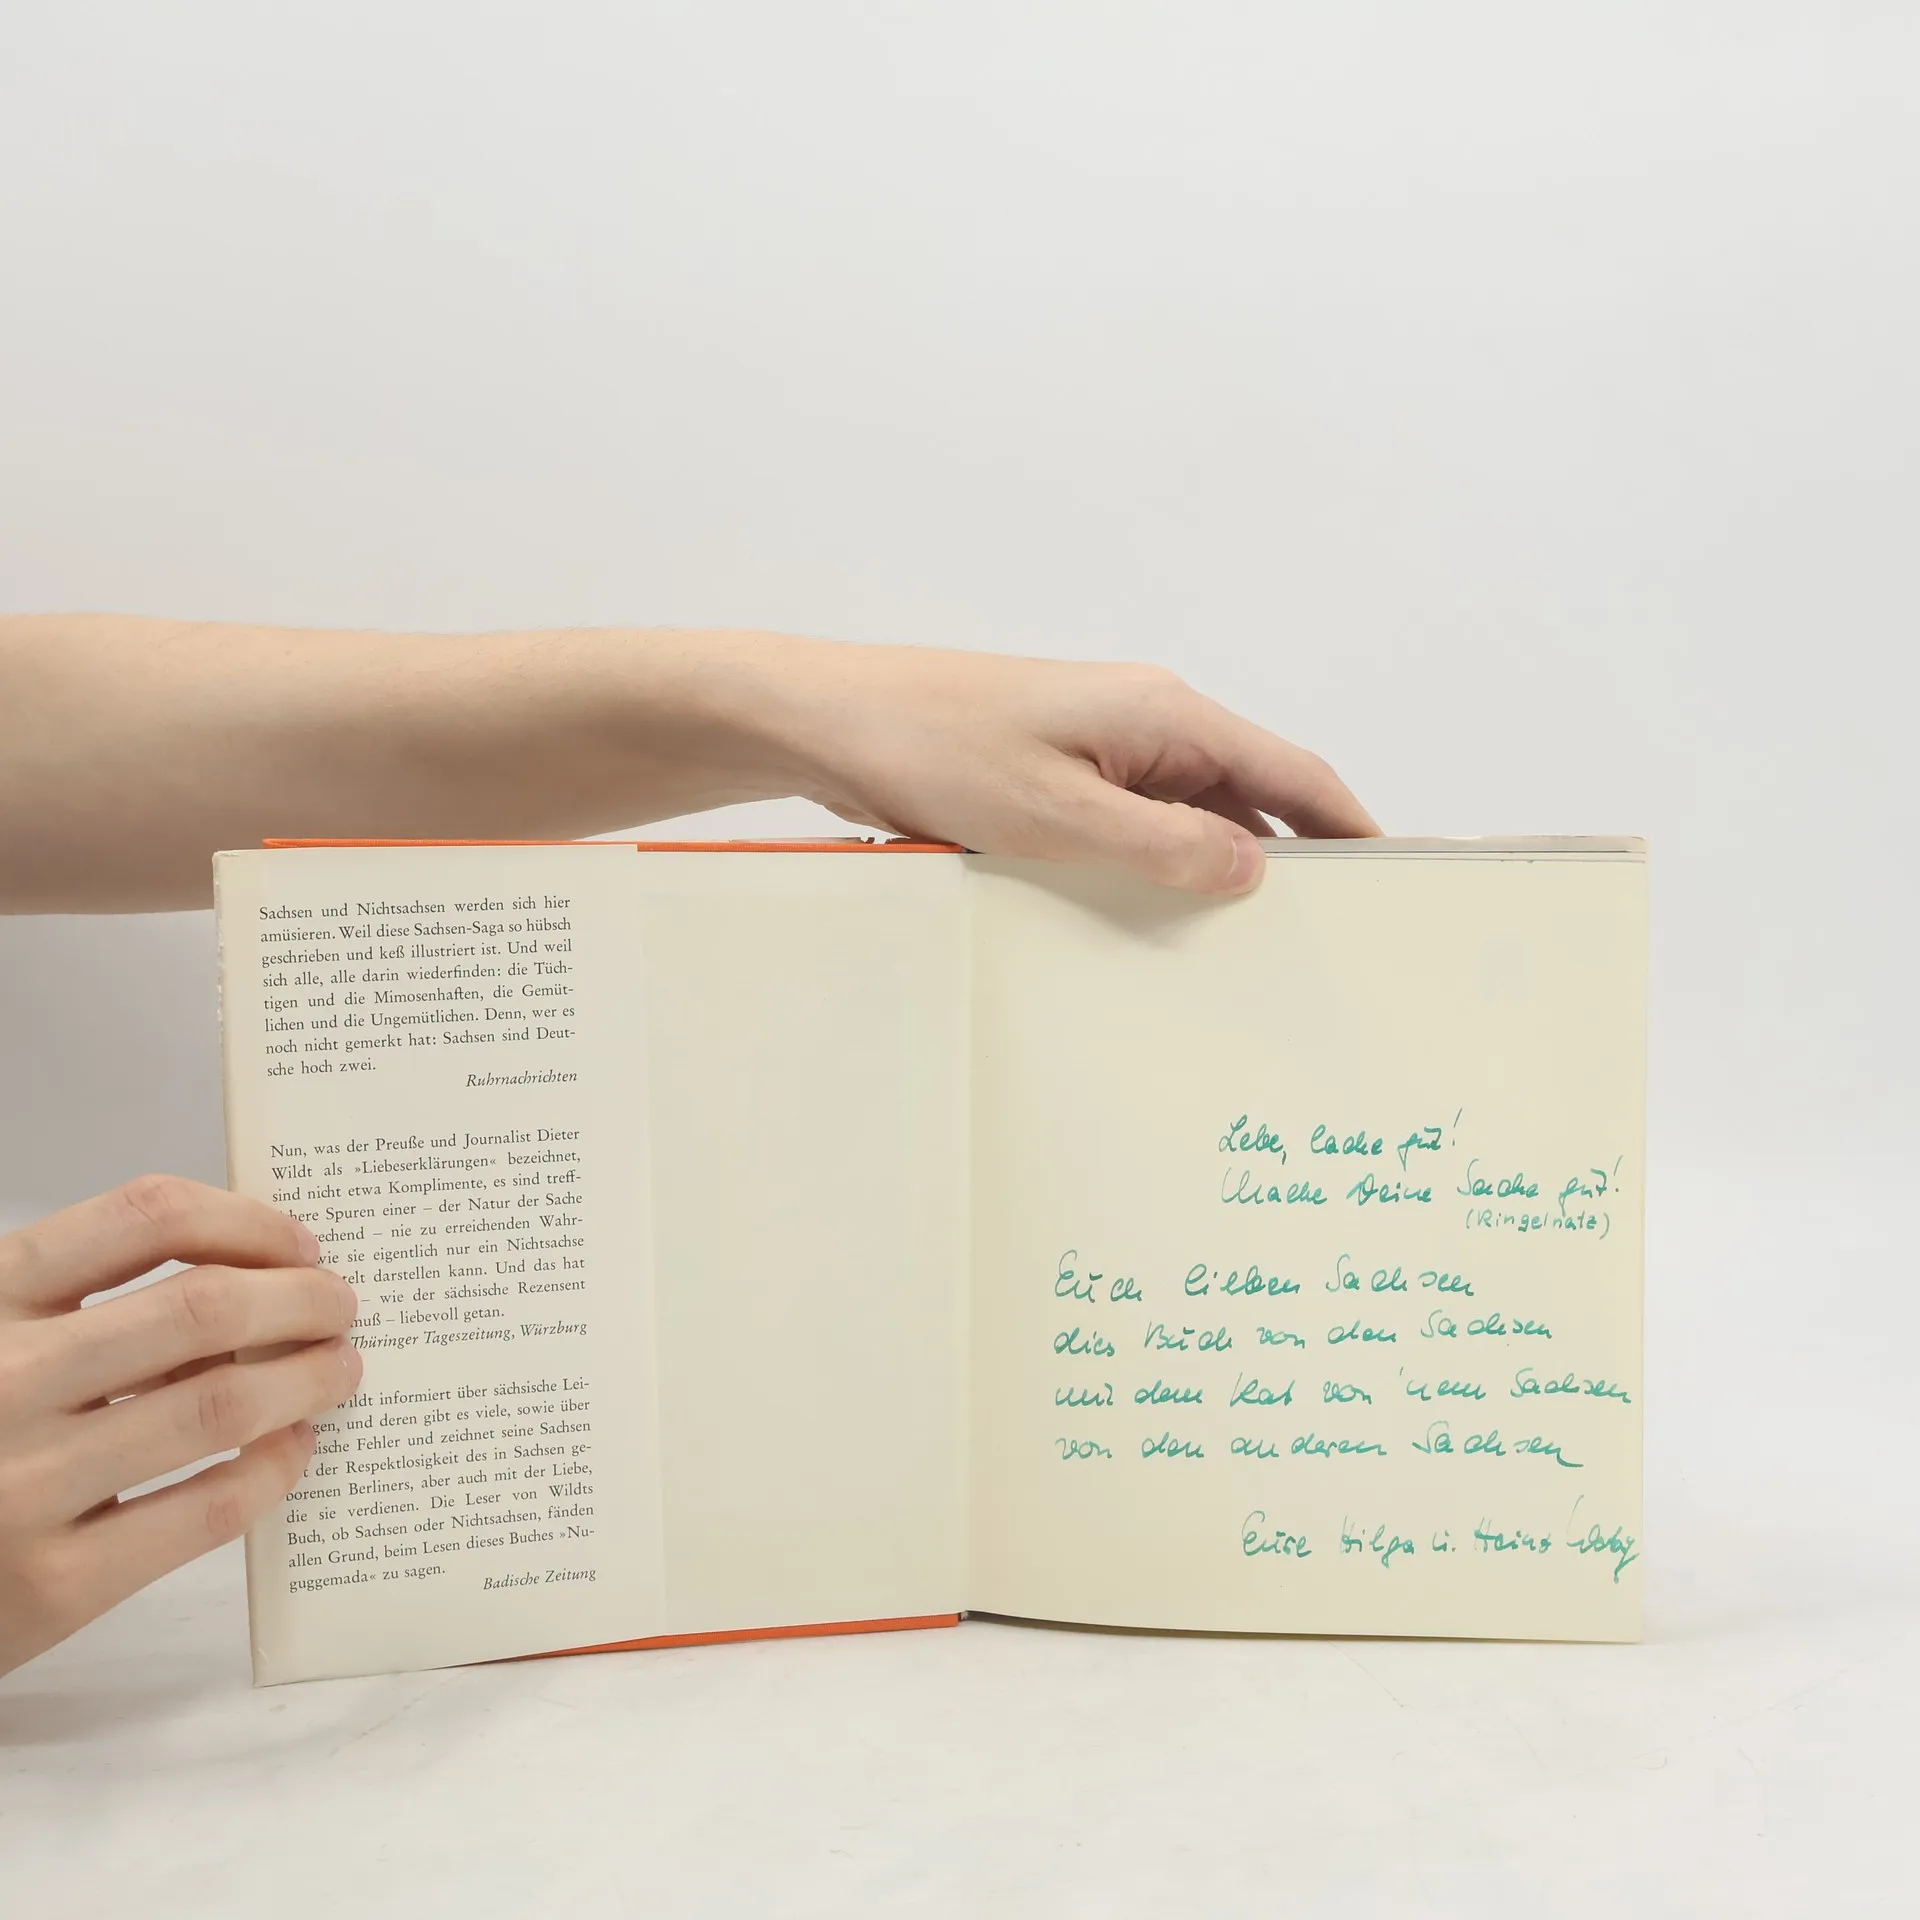 Sachsen und Nichtsachsen werden sich hier
amüsieren. Weil diese Sachsen-Saga so hübsch
geschrieben und keß illustriert ist. Und weil
sich alle, alle darin wiederfinden: die Tüch-
tigen und die Mimosenhaften, die Gemüt-
lichen und die Ungemütlichen. Denn, wer es
noch nicht gemerkt hat: Sachsen sind Deut-
sche hoch zwei.
Ruhrnachrichten
Nun, was der Preuße und Journalist Dieter
Wildt als »Liebeserklärungen« bezeichnet,
sind nicht etwa Komplimente, es sind treff-
here Spuren einer – der Natur der Sache
rechend – nie zu erreichenden Wahr-
wie sie eigentlich nur ein Nichtsachse
telt darstellen kann. Und das hat
– wie der sächsische Rezensent
muß – liebevoll getan.
Thüringer Tageszeitung, Würzburg
Wildt informiert über sächsische Lei-
gen, und deren gibt es viele, sowie über
sische Fehler und zeichnet seine Sachsen
t der Respektlosigkeit des in Sachsen ge-
borenen Berliners, aber auch mit der Liebe,
die sie verdienen. Die Leser von Wildts
Buch, ob Sachsen oder Nichtsachsen, fänden
allen Grund, beim Lesen dieses Buches »Nu-
guggemada« zu sagen.
Badische Zeitung
Lebe, lache gut!
Mache Deine Sache gut!
(Ringelnatz)
Euch lieben Sachsen
dies Buch von den Sachsen
mit dem Rat von 'nem Sachsen
von den anderen Sachsen
Eure Hilga u. Heinz